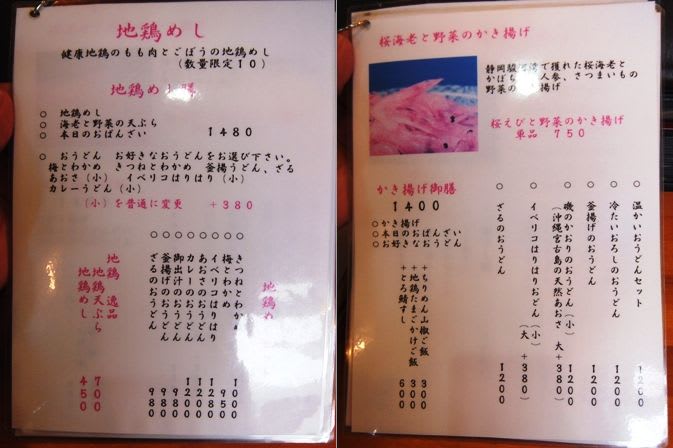 地鶏めし
健康地鶏のもも肉とごぼうの地鶏めし
(数量限定10)
地鶏めし膳
○ 地鶏めし
○ 海老と野菜の天ぷら
○ 本日のおばんざい 1480
○ おうどん お好きなおうどんをお選び下さい。
梅とわかめ きつねとわかめ 釜揚うどん、ざる
あおさ(小) イベリコはりはり(小)
カレーうどん(小)
(小)を普通に変更 +380
地鶏め
○ きつねとわかめ
○ 梅とわかめ 950
○ イベリコはりはり 1280
○ あおさのおうどん
○ カレーのおうどん
○ 御出汁のおうどん
○ 釜揚げのおうどん 980
○ ざるのおうどん 980
地鶏 逸品
地鶏天ぷら 700
地鶏めし 450
桜海老と野菜のかき揚げ
静岡駿河湾で獲れた桜海老と
かぼち 人参、さつまいもの
野菜の き揚げ
桜えびと野菜のかき揚げ
単品 750
かき揚げ御膳
1400
○かき揚げ
○本日のおばんざい
○お好きなおうどん
+ちりめん山椒ご飯 300
+地鶏たまごかけご飯 300
+とろ鯖すし 600
○ 温かいおうどんセット 1200
○ 冷たいおろしのおうどん 1200
○ 釜揚げのおうどん 1200
○ 磯のかおりのおうどん(小) 1200
(沖縄宮古島の天然あおさ 大+380)
○ イベリコはりはりおどん(小)
(大 +380)
○ ざるのおうどん 1200